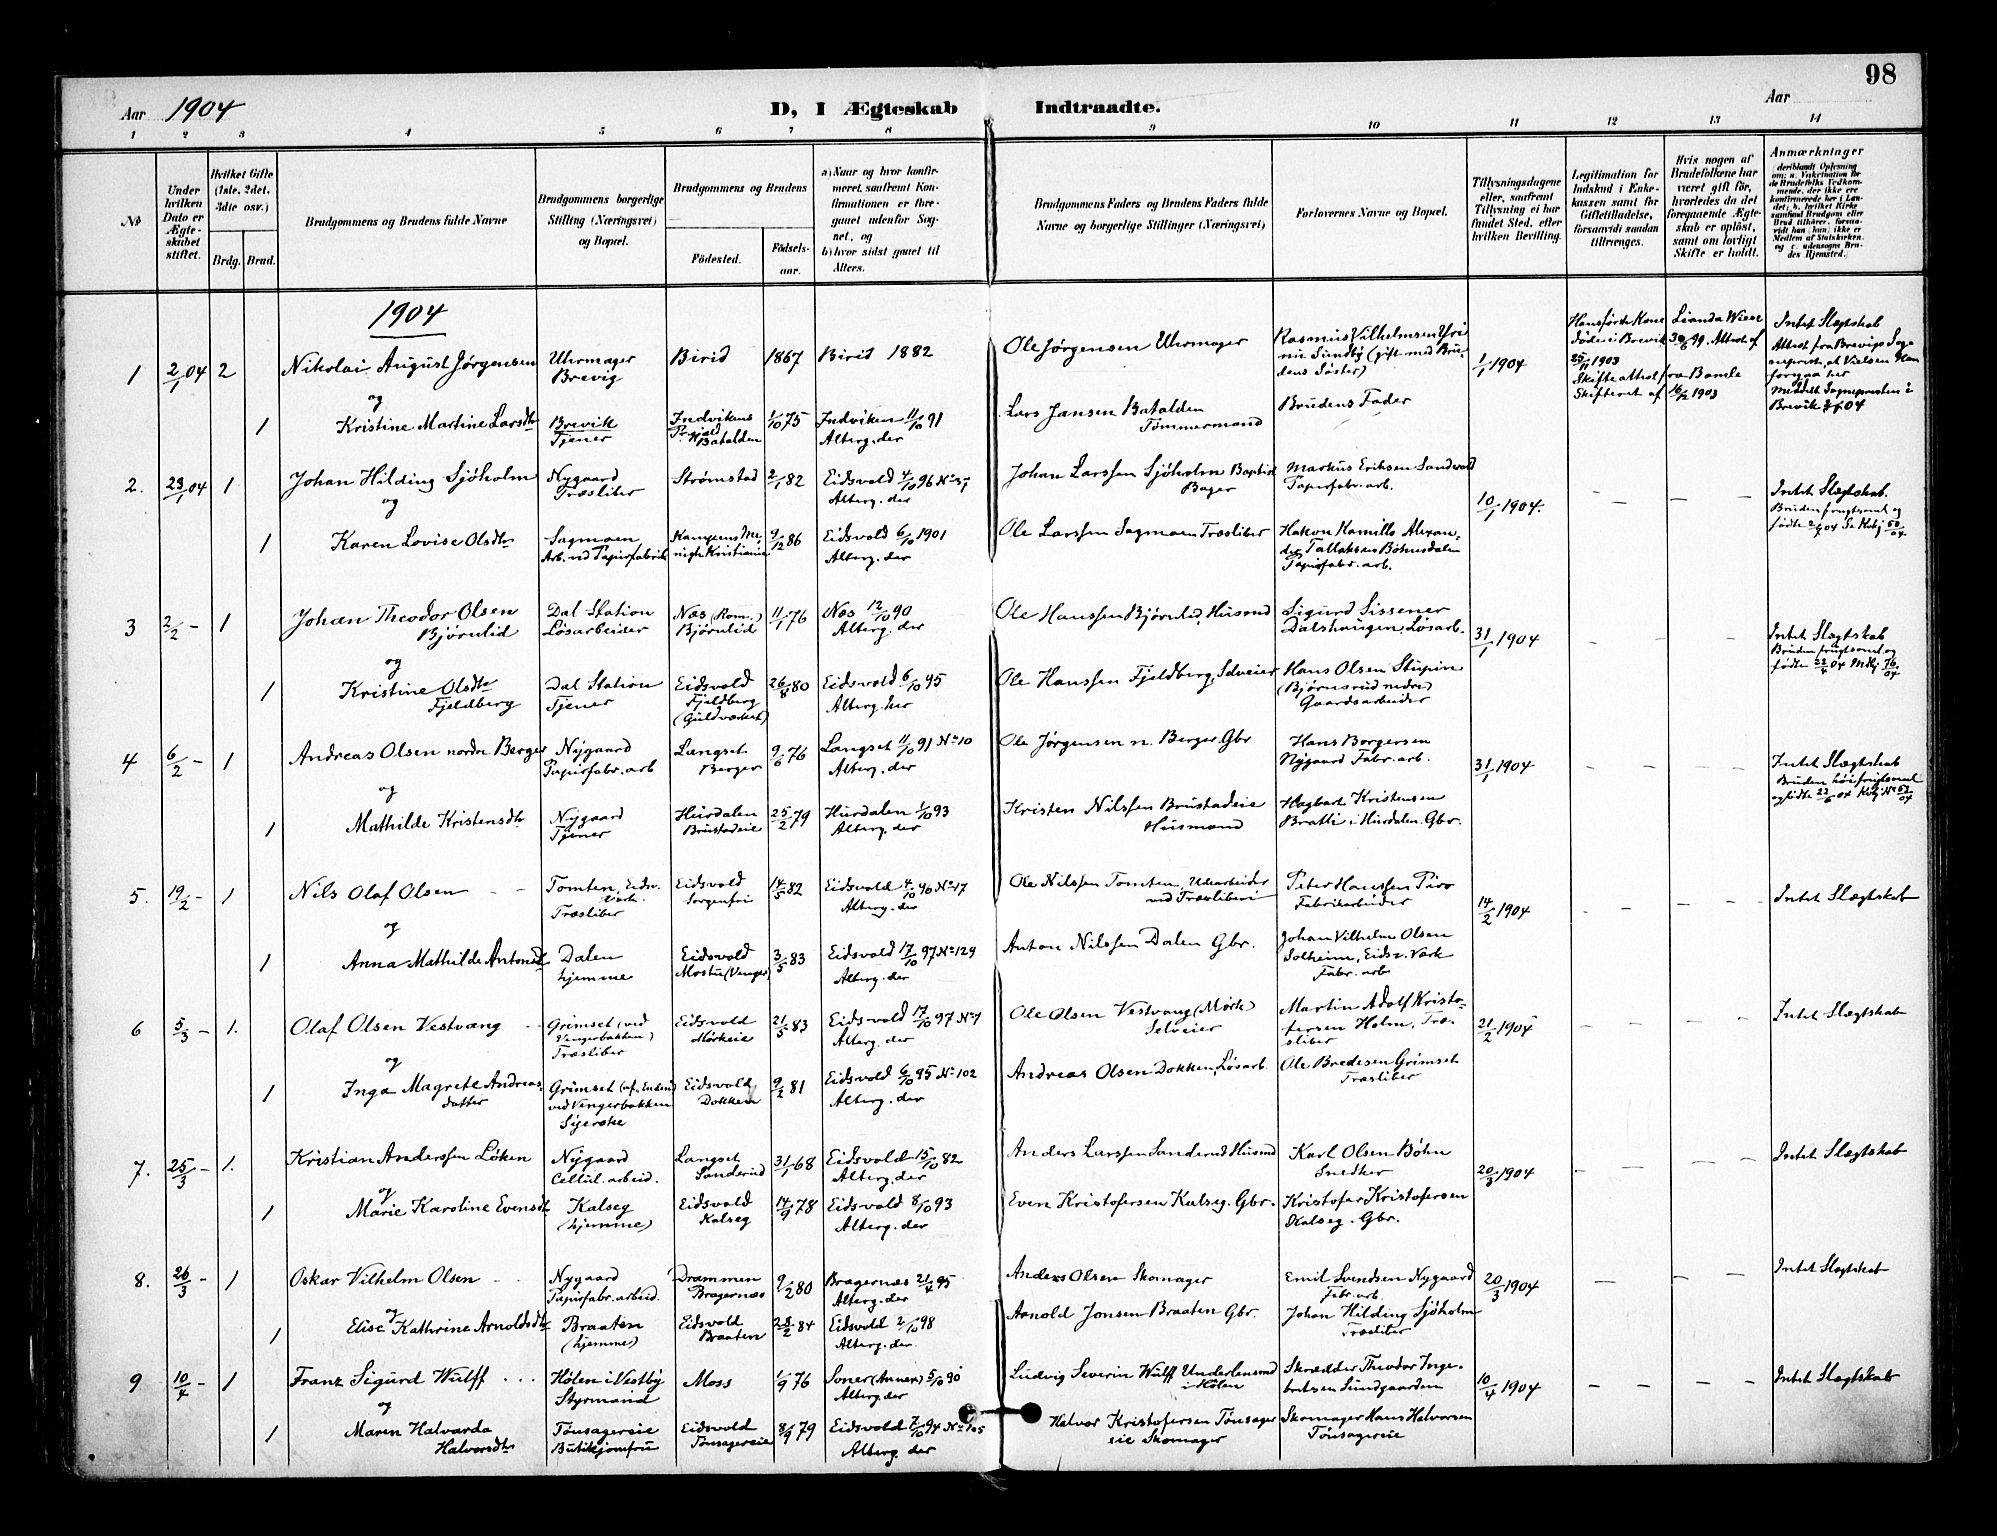 98
Aar 1904
D, I Ægteskab Indtraadte.
Aar
1 2 3 4 5 6 7 8 9 10 11 12 13 14
№
Under hvilken Dato er Ægteskabet stiftet.
Hvilket Gifte (1ste, 2det, 3die osv.)
Brdg. Brud.
Brudgommens og Brudens fulde Navne
Brudgommens borgerlige Stilling (Næringsvei) og Bopæl.
Brudgommens og Brudens
Fødested.
Fødselsaar.
a) Naar og hvor konfirmeret, saafremt Konfirmationen er foregaaet udenfor Sognet, og
b) hvor sidst gaaet til Alters.
Brudgommens Faders og Brudens Faders fulde Navne og borgerlige Stillinger (Næringsvei)
Forlovernes Navne og Bopæl.
Tillysningsdagene eller, saafremt Tillysning ei har fundet Sted, efter hvilken Bevilling.
Legitimation for Indskud i Enkekassen samt for Giftetilladelse, forsaavidt saadan tiltrænges.
Hvis nogen af Brudefolkene har været gift før, hvorledes da det foregaaende Ægteskab er opløst, samt om lovligt Skifte er holdt.
Anmærkninger
1904
1 2/1 04 2 Nikolai August Jørgensen Uhrmager Brevig Birid 1867 Birid 1882 Ole Jørgensen Uhrmager Rasmus Vilhelmsen Sundby (gift med Brudens Søster) 1/1 1904
Skifteattest fra Bamle Skifteret af 16/12 1903
Intet Slægtskab
og
1 Kristine Martine Larsdtr Brevik Tjener Indviken Batalden 1/10 75 Indviken 11/10 91 Alterg. der Lars Jansen Batalden Tømmermand Brudens Fader
2. 23/1 04 1 Johan Hilding Sjøholm Nygaard Træsliber Strømstad 2/1 82 Eidsvold 4/10 96 Alterg. der Johan Larssen Sjøholm Baptist Bager Markus Eriksen Papirfabr. arb. 10/1 1904. Intet Slægtskab. Bruden frugtsoml og
og
1 Karen Lovise Olsdtr Sagmoen Arb. ved Papirfabrik Kampens Menigh Kristiania 9/12 86 Eidsvold 6/10 1901 Alterg. der Ole Larssen Sagmoen Træsliber Hakon Kamillo Alexander Tallaksen Bøhnsdalen Papirfabr. arb.
3 2/2 – 1 Johan Theodor Olsen Bjørnlid Dal Station Løsarbeider Næs (Rom.) Bjørnlid 11/1 76 Næs 12/10 90 Alterg. der Ole Hanssen Bjørnlid, Husmd Sigurd Sissener Dalshaugen, Løsarb. 31/1 1904 Intet Slægtskab Bruden frugtsomel og
og
1 Kristine Olsdtr Fjeldberg Dal Station Tjener Eidsvold Fjeldberg (Guldverket) 26/8 80 Eidsvold 6/10 95 Alterg. her Ole Hanssen Fjeldberg, Selveier Hans Olsen Stupin (Bjørnsrud nedre) Gaardsarbeider
4 6/2 – 1 Andreas Olsen nordre Berger Nygaard Papirfabr. arb Langset Berger 9/6 76 Langset 11/10 91 No 10 Alterg. der Ole Jørgensen n. Berger. Gbr Hans Borgersen Nygaard Fabr. arb. 31/1 1904 Intet Slægtskab
og
1 Mathilde Kristensdtr Nygaard Tjener Hurdalen Brustadeie 25/2 79 Hurdalen 1/10 93 Alterg. der Kristen Nilssen Brustadeie Husmand Hagbart Kristensen Bratli i Hurdalen. Gbr.
5. 19/2 – 1 Nils Olaf Olsen Tomten, Eidsv. Værk. Træsliber Eidsvold Sorgenfri 14/5 82 Eidsvold 4/10 96 No 17 Alterg. der Ole Nilssen Tomten, Udearbeider ved Træsliberi Peter Hanssen Piro Fabrikarbeider 14/2 1904 Intet Slægtskab
og
1 Anna Mathilde Antonsdtr Dalen hjemme Eidsvold Mostu (Venger) 3/5 83 Eidsvold 17/10 97 No 129 Alterg. der Anton Nilssen Dalen Gbr. Johan Vilhelm Olsen Solheim, Eidsv. Værk Fabr. arb
6 5/3 – 1. Olaf Olsen Vestvang Grimset (ved Vengerbakken) Træsliber Eidsvold Mørkeie 21/5 83 Eidsvold 17/10 97 Alterg. der Ole Olsen Vestvang (Mørk) Selveier Martin Adolf Kristofersen Holm, Træsliber 21/2 1904 Intet Slægtskab
og
1 Inga Magrete Andreasdatter Grimset ved Vengerbakken Syerske Eidsvold Dokken 9/2 81 Eidsvold 6/10 95 No 102 Alterg. der Andreas Olsen Dokken, Løsarb. Ole Bredesen Grimset Træsliber
7. 25/3 – 1. Kristian Anderssen Løken Nygaard Cellul. arbeid. Langset Sanderud 31/1 68 Eidsvold 15/10 82 Alterg. der Anders Larssen Sanderud Husmd Karl Olsen Bøhn Snedker 20/3 1904 Intet Slægtskab
og
1 Marie Karoline Evensdtr Kalseg (hjemme) Eidsvold Kalseg 14/9 78 Eidsvold 8/10 93 Alterg. der Even Kristofersen Kalseg. Gbr. Kristofer Kristofersen Kalseg. Gbr.
8. 26/3 – 1 Oskar Vilhelm Olsen Nygaard Papirfabr. arbeid. Drammen Bragernæs 9/2 80 Bragernæs 21/4 95 Alterg. der Anders Olsen Skomager Emil Svendsen Nygaard Fabr. arb. 20/3 1904 Intet Slægtskab
og
1 Elise Kathrine Arnoldsdtr Braaten (hjemme) Eidsvold Braaten 28/2 84 Eidsvold 2/10 98 Alterg. der Arnold Jonsen Braaten Gbr. Johan Hilding Sjøholm Træsliber
9 10/4 – 1 Franz Sigurd Wulff Hølen i Vestby Styrmand Moss 1/9 76 Soner (Annex) 5/10 90 Alterg. der Ludvig Severin Wulff Underlensmd i Hølen Skrædder Theodor Ingebretsen Sundgaarden 10/4 1904 Intet Slægtskab
og
1 Maren Halvarda Halvorsdtr Tønsagereie Butikjomfru Eidsvold Tønsagereie 8/9 79 Eidsvold 7/10 94 Alterg. der Halvor Kristofersen Tønsager eie Skomager Skomager Hans Halvorsen Tønsagereie